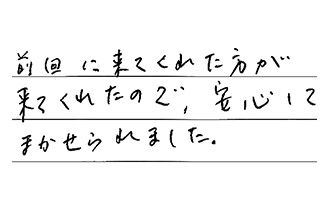 前回に来てくれた方が
来てくれたので、安心して
まかせられました。